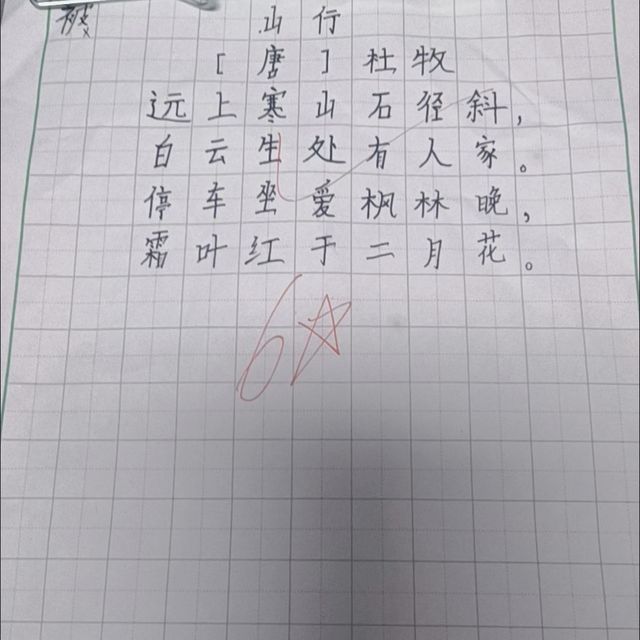 被
山行
[唐]杜牧
远上寒山石径斜,
白云生处有人家。
停车坐爱枫林晚,
霜叶红于二月花。
6☆